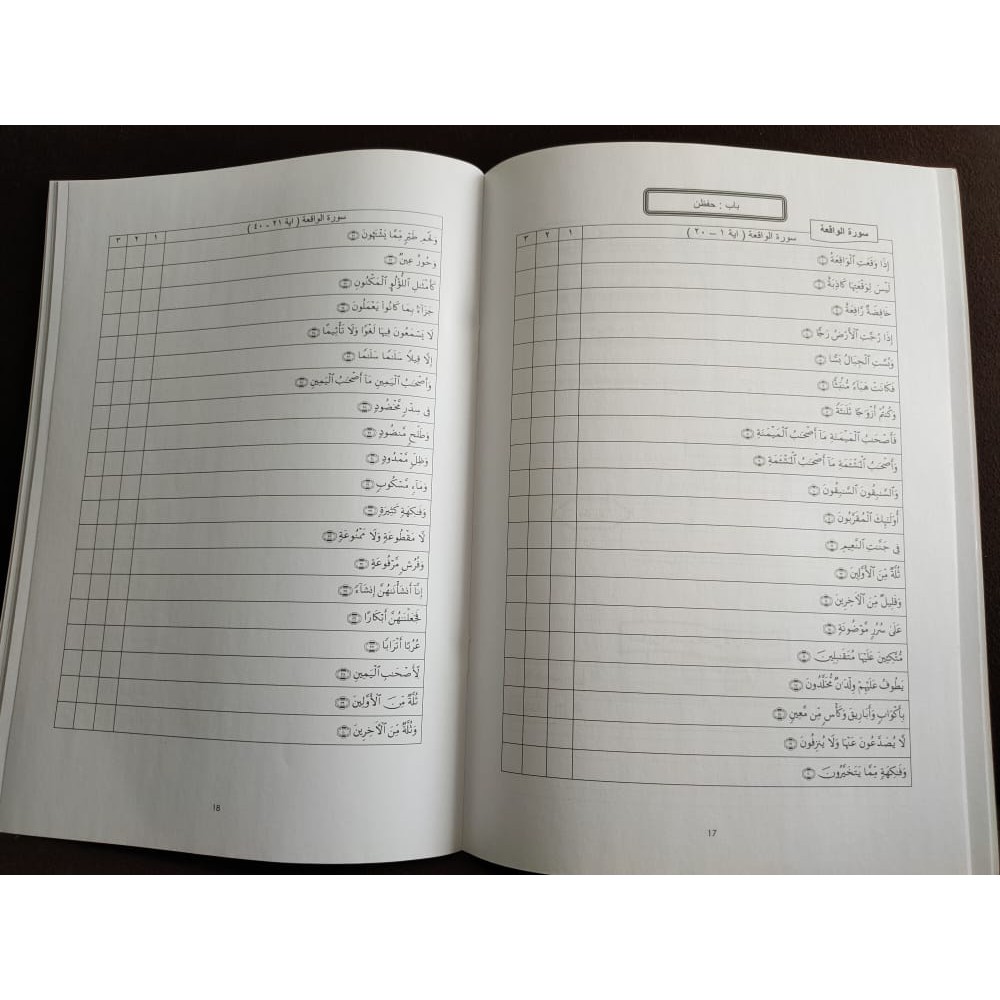 باب : حفظن
سورة الواقعة
سورة الواقعة ( اية ١ – ٢٠ ) ١ ٢ ٣
إِذَا وَقَعَتِ ٱلْوَاقِعَةُ
لَيْسَ لِوَقْعَتِهَا كَاذِبَةٌ
خَافِضَةٌ رَّافِعَةٌ
إِذَا رُجَّتِ ٱلْأَرْضُ رَجًّا
وَبُسَّتِ ٱلْجِبَالُ بَسًّا
فَكَانَتْ هَبَآءً مُّنۢبَثًّا
وَكُنتُمْ أَزْوَٰجًا ثَلَٰثَةً
فَأَصْحَٰبُ ٱلْمَيْمَنَةِ مَآ أَصْحَٰبُ ٱلْمَيْمَنَةِ
وَأَصْحَٰبُ ٱلْمَشْـَٔمَةِ مَآ أَصْحَٰبُ ٱلْمَشْـَٔمَةِ
وَٱلسَّٰبِقُونَ ٱلسَّٰبِقُونَ
أُو۟لَٰٓئِكَ ٱلْمُقَرَّبُونَ
فِى جَنَّٰتِ ٱلنَّعِيمِ
ثُلَّةٌ مِّنَ ٱلْأَوَّلِينَ
وَقَلِيلٌ مِّنَ ٱلْءَاخِرِينَ
عَلَىٰ سُرُرٍ مَّوْضُونَةٍ
مُّتَّكِـِٔينَ عَلَيْهَا مُتَقَٰبِلِينَ
يَطُوفُ عَلَيْهِمْ وِلْدَٰنٌ مُّخَلَّدُونَ
بِأَكْوَابٍ وَأَبَارِيقَ وَكَأْسٍ مِّن مَّعِينٍ
لَّا يُصَدَّعُونَ عَنْهَا وَلَا يُنزِفُونَ
وَفَٰكِهَةٍ مِّمَّا يَتَخَيَّرُونَ
17
سورة الواقعة ( اية ٢١ – ٤٠ ) ١ ٢ ٣
وَلَحْمِ طَيْرٍ مِّمَّا يَشْتَهُونَ
وَحُورٌ عِينٌ
كَأَمْثَٰلِ ٱللُّؤْلُؤِ ٱلْمَكْنُونِ
جَزَآءًۢ بِمَا كَانُوا۟ يَعْمَلُونَ
لَا يَسْمَعُونَ فِيهَا لَغْوًا وَلَا تَأْثِيمًا
إِلَّا قِيلًا سَلَٰمًا سَلَٰمًا
وَأَصْحَٰبُ ٱلْيَمِينِ مَآ أَصْحَٰبُ ٱلْيَمِينِ
فِى سِدْرٍ مَّخْضُودٍ
وَطَلْحٍ مَّنضُودٍ
وَظِلٍّ مَّمْدُودٍ
وَمَآءٍ مَّسْكُوبٍ
وَفَٰكِهَةٍ كَثِيرَةٍ
لَّا مَقْطُوعَةٍ وَلَا مَمْنُوعَةٍ
وَفُرُشٍ مَّرْفُوعَةٍ
إِنَّآ أَنشَأْنَٰهُنَّ إِنشَآءً
فَجَعَلْنَٰهُنَّ أَبْكَارًا
عُرُبًا أَتْرَابًا
لِّأَصْحَٰبِ ٱلْيَمِينِ
ثُلَّةٌ مِّنَ ٱلْأَوَّلِينَ
وَثُلَّةٌ مِّنَ ٱلْءَاخِرِينَ
18